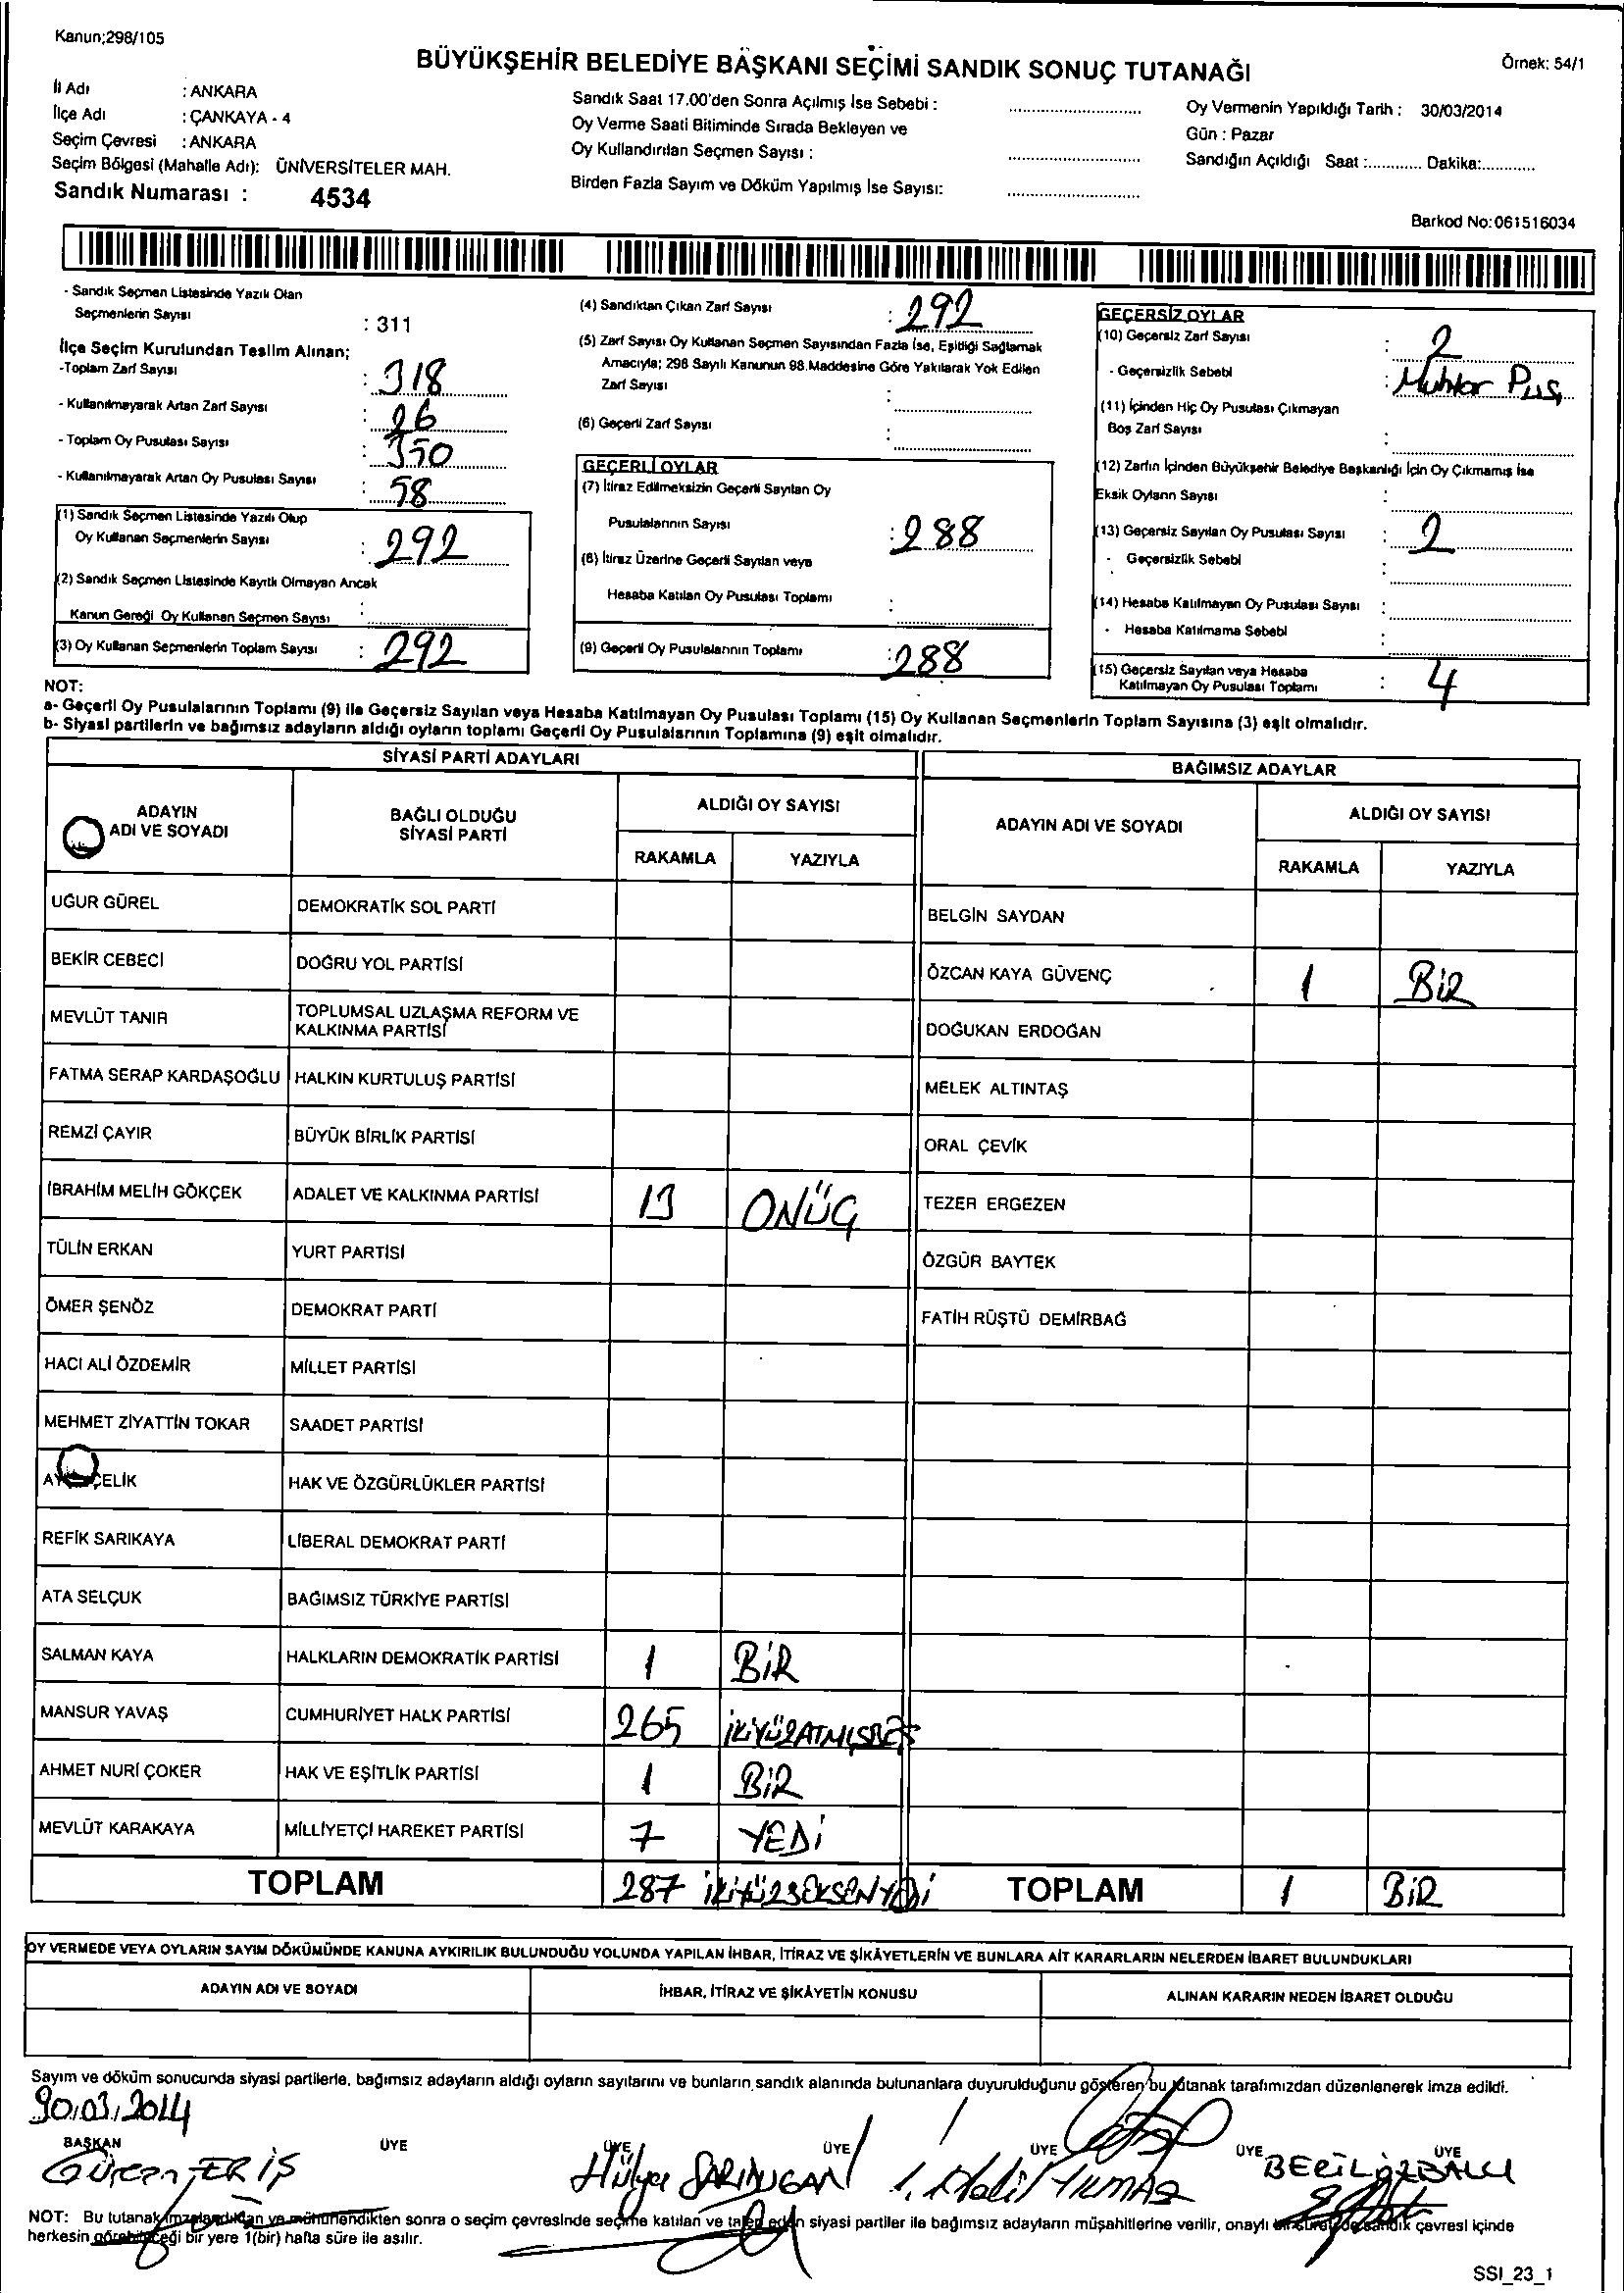 Kanun;298/105
BÜYÜKŞEHİR BELEDİYE BAŞKANI SEÇİMİ SANDIK SONUÇ TUTANAĞI
Örnek: 54/1
İli Adı : ANKARA
İlçe Adı : ÇANKAYA - 4
Seçim Çevresi : ANKARA
Seçim Bölgesi (Mahalle Adı): ÜNİVERSİTELER MAH.
Sandık Numarası : 4534
Sandık Saat 17.00'den Sonra Açılmış İse Sebebi : ..............................
Oy Verme Saati Bitiminde Sırada Bekleyen ve
Oy Kullandırılan Seçmen Sayısı : ..............................
Birden Fazla Sayım ve Döküm Yapılmış İse Sayısı: ..............................
Oy Vermenin Yapıldığı Tarih : 30/03/2014
Gün : Pazar
Sandığın Açıldığı Saat :............ Dakika:............
Barkod No:061516034
- Sandık Seçmen Listesinde Yazılı Olan
Seçmenlerin Sayısı : 311
İlçe Seçim Kurulundan Teslim Alınan;
-Toplam Zarf Sayısı : 318
- Kullanılmayarak Artan Zarf Sayısı : 26
- Toplam Oy Pusulası Sayısı : 350
- Kullanılmayarak Artan Oy Pusulası Sayısı : 58
(1) Sandık Seçmen Listesinde Yazılı Olup
Oy Kullanan Seçmenlerin Sayısı : 292
(2) Sandık Seçmen Listesinde Kayıtlı Olmayan Ancak
Kanun Gereği Oy Kullanan Seçmen Sayısı :
(3) Oy Kullanan Seçmenlerin Toplam Sayısı : 292
(4) Sandıktan Çıkan Zarf Sayısı : 292
(5) Zarf Sayısı Oy Kullanan Seçmen Sayısından Fazla İse, Eşitliği Sağlamak
Amacıyla; 298 Sayılı Kanunun 98.Maddesine Göre Yakılarak Yok Edilen
Zarf Sayısı :
(6) Geçerli Zarf Sayısı :
GEÇERLİ OYLAR
(7) İtiraz Edilmeksizin Geçerli Sayılan Oy
Pusulalarının Sayısı : 288
(8) İtiraz Üzerine Geçerli Sayılan veya
Hesaba Katılan Oy Pusulası Toplamı :
(9) Geçerli Oy Pusulalarının Toplamı : 288
GEÇERSİZ OYLAR
(10) Geçersiz Zarf Sayısı : 2
- Geçersizlik Sebebi : Muhtar Pus.
(11) İçinden Hiç Oy Pusulası Çıkmayan
Boş Zarf Sayısı :
(12) Zarfın İçinden Büyükşehir Belediye Başkanlığı İçin Oy Çıkmamış İse
Eksik Oyların Sayısı :
(13) Geçersiz Sayılan Oy Pusulası Sayısı : 2
- Geçersizlik Sebebi :
(14) Hesaba Katılmayan Oy Pusulası Sayısı :
- Hesaba Katılmama Sebebi :
(15) Geçersiz Sayılan veya Hesaba
Katılmayan Oy Pusulası Toplamı : 4
NOT:
a- Geçerli Oy Pusulalarının Toplamı (9) ile Geçersiz Sayılan veya Hesaba Katılmayan Oy Pusulası Toplamı (15) Oy Kullanan Seçmenlerin Toplam Sayısına (3) eşit olmalıdır.
b- Siyasi partilerin ve bağımsız adayların aldığı oyların toplamı Geçerli Oy Pusulalarının Toplamına (9) eşit olmalıdır.
SİYASİ PARTİ ADAYLARI
ADAYIN ADI VE SOYADI BAĞLI OLDUĞU SİYASİ PARTİ ALDIĞI OY SAYISI
RAKAMLA YAZIYLA
UĞUR GÜREL DEMOKRATİK SOL PARTİ
BEKİR CEBECİ DOĞRU YOL PARTİSİ
MEVLÜT TANIR TOPLUMSAL UZLAŞMA REFORM VE KALKINMA PARTİSİ
FATMA SERAP KARDAŞOĞLU HALKIN KURTULUŞ PARTİSİ
REMZİ ÇAYIR BÜYÜK BİRLİK PARTİSİ
İBRAHİM MELİH GÖKÇEK ADALET VE KALKINMA PARTİSİ 13 ONÜÇ
TÜLİN ERKAN YURT PARTİSİ
ÖMER ŞENÖZ DEMOKRAT PARTİ
HACI ALİ ÖZDEMİR MİLLET PARTİSİ
MEHMET ZİYATTİN TOKAR SAADET PARTİSİ
ÇELİK HAK VE ÖZGÜRLÜKLER PARTİSİ
REFİK SARIKAYA LİBERAL DEMOKRAT PARTİ
ATA SELÇUK BAĞIMSIZ TÜRKİYE PARTİSİ
SALMAN KAYA HALKLARIN DEMOKRATİK PARTİSİ 1 BİR
MANSUR YAVAŞ CUMHURİYET HALK PARTİSİ 265 İKİYÜZATMIŞBEŞ
AHMET NURİ ÇOKER HAK VE EŞİTLİK PARTİSİ 1 BİR
MEVLÜT KARAKAYA MİLLİYETÇİ HAREKET PARTİSİ 7 YEDİ
TOPLAM 287 İKİYÜZSEKSENYEDİ
BAĞIMSIZ ADAYLAR
ADAYIN ADI VE SOYADI ALDIĞI OY SAYISI
RAKAMLA YAZIYLA
BELGİN SAYDAN
ÖZCAN KAYA GÜVENÇ 1 BİR
DOĞUKAN ERDOĞAN
MELEK ALTINTAŞ
ORAL ÇEVİK
TEZER ERGEZEN
ÖZGÜR BAYTEK
FATİH RÜŞTÜ DEMİRBAĞ
TOPLAM 1 BİR
OY VERMEDE VEYA OYLARIN SAYIM DÖKÜMÜNDE KANUNA AYKIRILIK BULUNDUĞU YOLUNDA YAPILAN İHBAR, İTİRAZ VE ŞİKÂYETLERİN VE BUNLARA AİT KARARLARIN NELERDEN İBARET BULUNDUKLARI
ADAYIN ADI VE SOYADI İHBAR, İTİRAZ VE ŞİKÂYETİN KONUSU ALINAN KARARIN NEDEN İBARET OLDUĞU
Sayım ve döküm sonucunda siyasi partilerle, bağımsız adayların aldığı oyların sayılarını ve bunların sandık alanında bulunanlara duyurulduğunu gösteren bu tutanak tarafımızdan düzenlenerek imza edildi.
30.03.2014
BAŞKAN ÜYE ÜYE ÜYE ÜYE ÜYE ÜYE
Hülya İ. Halil YILMAZ BERİL
NOT: Bu tutanak imzalandıktan ve mühürlendikten sonra o seçim çevresinde seçime katılan ve talep eden siyasi partiler ile bağımsız adayların müşahitlerine verilir, onaylı bir sureti de sandık çevresi içinde
herkesin görebileceği bir yere 1(bir) hafta süre ile asılır.
SSI_23_1